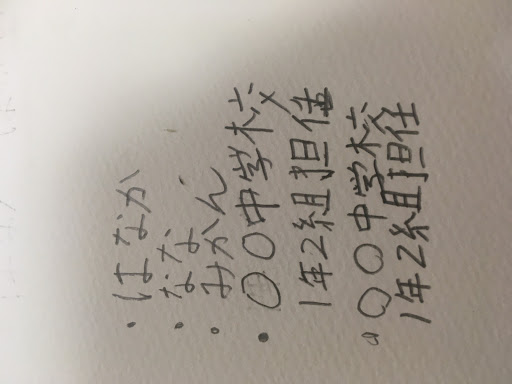 ・はなか
・なな
・みかん
・〇〇中学校
1年2組担任
・〇〇中学校
1年2組担任